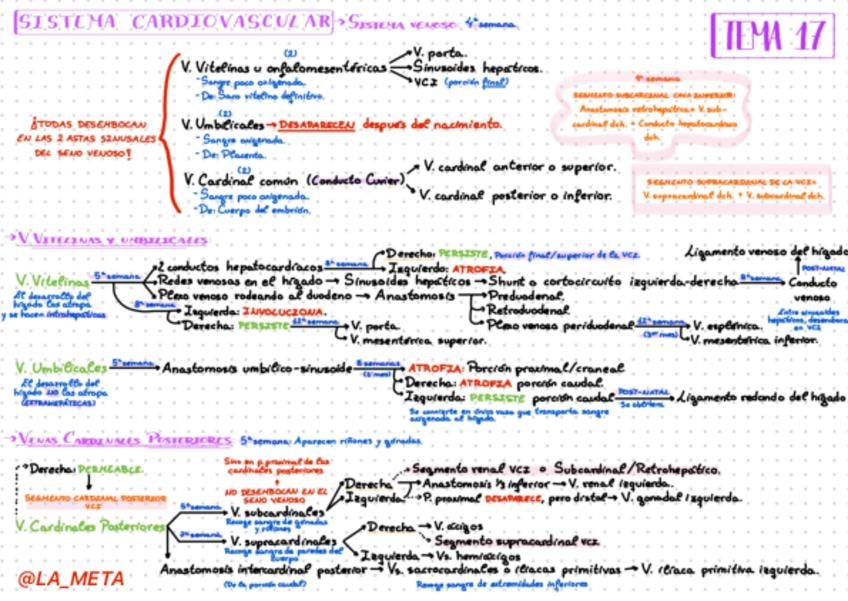 SISTEMA CARDIOVASCULAR → SISTEMA VENOSO 4ª semana
TEMA 17
¡TODAS DESEMBOCAN
EN LAS 2 ASTAS SINUSALES
DEL SENO VENOSO!
(2)
V. Vitelinas u onfalomesentéricas
- Sangre poco oxigenada.
- De: Saco vitelino definitivo.
V. porta.
Sinusoides hepáticos.
VCI (porción final)
(2)
V. Umbilicales → DESAPARECEN después del nacimiento.
- Sangre oxigenada.
- De: Placenta.
(2)
V. Cardinal común (Conducto Cuvier)
- Sangre poco oxigenada.
- De: Cuerpo del embrión.
V. cardinal anterior o superior.
V. cardinal posterior o inferior.
SEGMENTO SUBCARDINAL CAVA INFERIOR:
Anastomosis retrohepática = V. sub-
cardinal dch. + Conducto hepatocardíaco
dch.
SEGMENTO SUPRACARDINAL DE LA VCI=
V. supracardinal dch. + V. subcardinal dch.
→ V. VITELINAS Y UMBILICALES
V. Vitelinas
El desarrollo del
hígado las atrapa
y se hacen intrahepáticas
5ª semana
2 conductos hepatocardíacos
Derecho: PERSISTE, Porción final/superior de la VCI.
Izquierdo: ATROFIA.
Redes venosas en el hígado → Sinusoides hepáticos → Shunt o cortocircuito izquierda-derecha 8ª semana Conducto
venoso
Entre sinusoides
hepáticos, desemboca
en VCI
POST-NATAL
Ligamento venoso del hígado
Plexo venoso rodeando al duodeno → Anastomosis
Preduodenal.
Retroduodenal.
Plexo venoso periduodenal 12ª semana
(3er mes)
V. esplénica.
V. mesentérica inferior.
8ª semana
Izquierda: INVOLUCIONA.
Derecha: PERSISTE 12ª semana
V. porta.
V. mesentérica superior.
V. Umbilicales 5ª semana Anastomosis umbílico-sinusoide 8 semanas
(2 mes)
El desarrollo del
hígado NO las atropa
(EXTRAHEPÁTICAS)
ATROFIA: Porción proximal/craneal
Derecha: ATROFIA porción caudal.
Izquierda: PERSISTE porción caudal POST-NATAL Ligamento redondo del hígado
Se oblitera
Se convierte en único vaso que transporta sangre
oxigenada al hígado.
→ VENAS CARDINALES POSTERIORES: 5ª semana: Aparecen riñones y gónadas.
Derecha: PERMEABLE.
SEGMENTO CARDINAL POSTERIOR
VCI
V. Cardinales Posteriores
Sino en p. proximal de las
cardinales posteriores
↑
NO DESEMBOCAN EN EL
SENO VENOSO
5ª semana
V. subcardinales
Recoge sangre de gónadas
y riñones
Derecha
Izquierda
Segmento renal VCI o Subcardinal/Retrohepático.
Anastomosis ⅓ inferior → V. renal izquierda.
P. proximal DESAPARECE, pero distal → V. gonadal izquierda.
V. supracardinales
Recoge sangre de paredes del
cuerpo
Derecha → V. ácigos
Segmento supracardinal VCI.
Izquierda → Vs. hemiácigos
Anastomosis intercardinal posterior → Vs. sacrocardinales o ilíacas primitivas → V. ilíaca primitiva izquierda.
(De la porción caudal)
Recoge sangre de extremidades inferiores
@LA_META